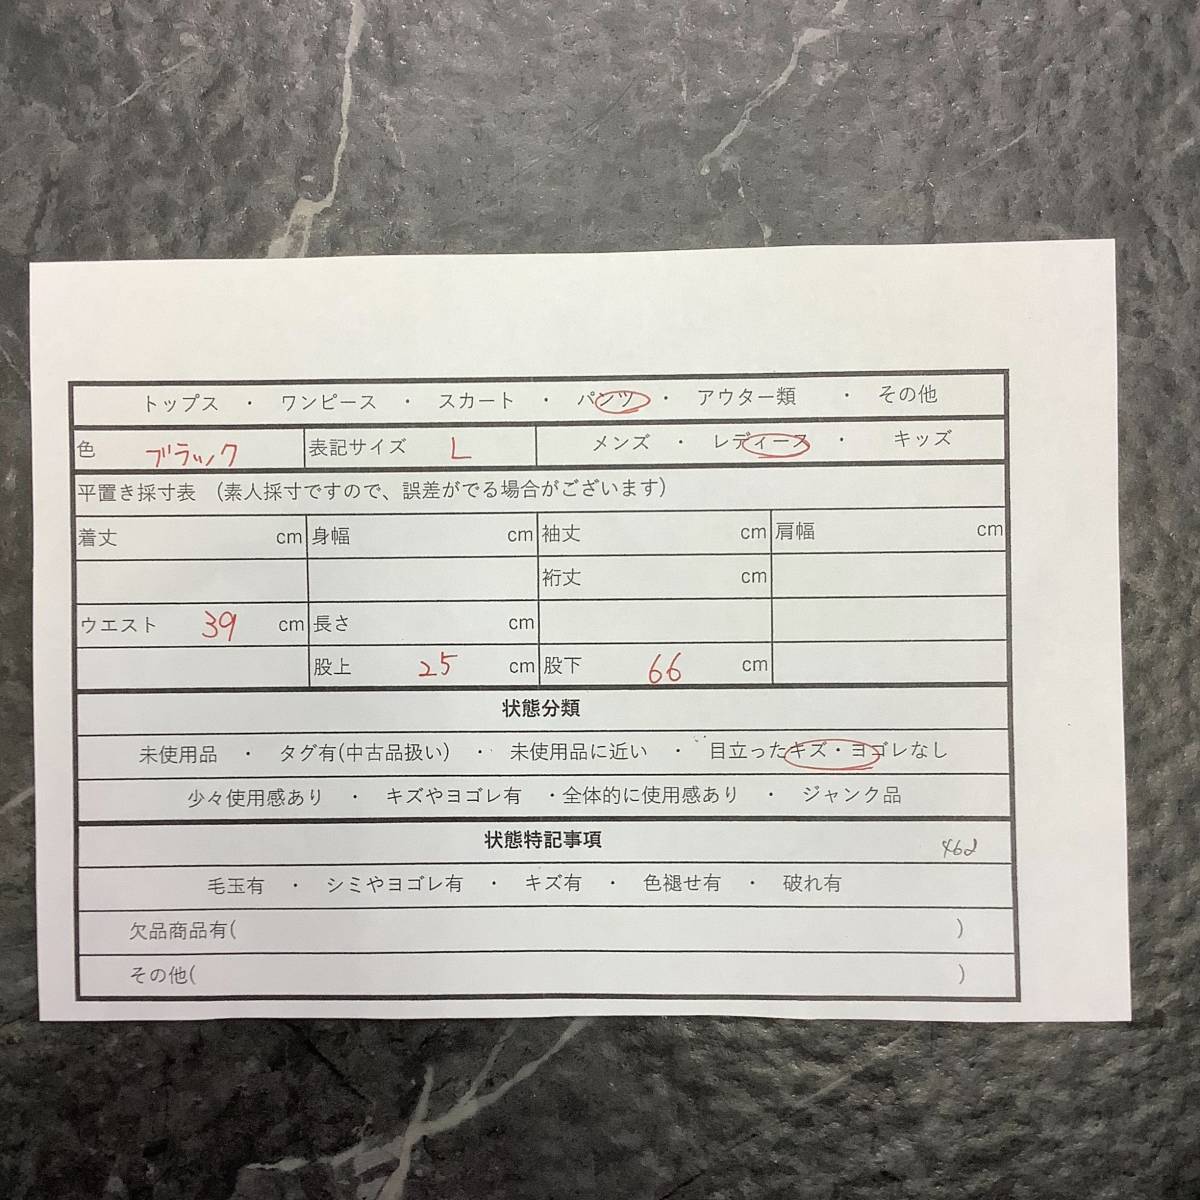 トップス ・ ワンピース ・ スカート ・ パンツ ・ アウター類 ・ その他
色 ブラック 表記サイズ L メンズ ・ レディース ・ キッズ
平置き採寸表 (素人採寸ですので、誤差がでる場合がございます)
着丈 cm 身幅 cm 袖丈 cm 肩幅 cm
裄丈 cm
ウエスト 39 cm 長さ cm
股上 25 cm 股下 66 cm
状態分類
未使用品 ・ タグ有(中古品扱い) ・ 未使用品に近い ・ 目立ったキズ・ヨゴレなし
少々使用感あり ・ キズやヨゴレ有 ・全体的に使用感あり ・ ジャンク品
状態特記事項
毛玉有 ・ シミやヨゴレ有 ・ キズ有 ・ 色褪せ有 ・ 破れ有
欠品商品有( )
その他( )